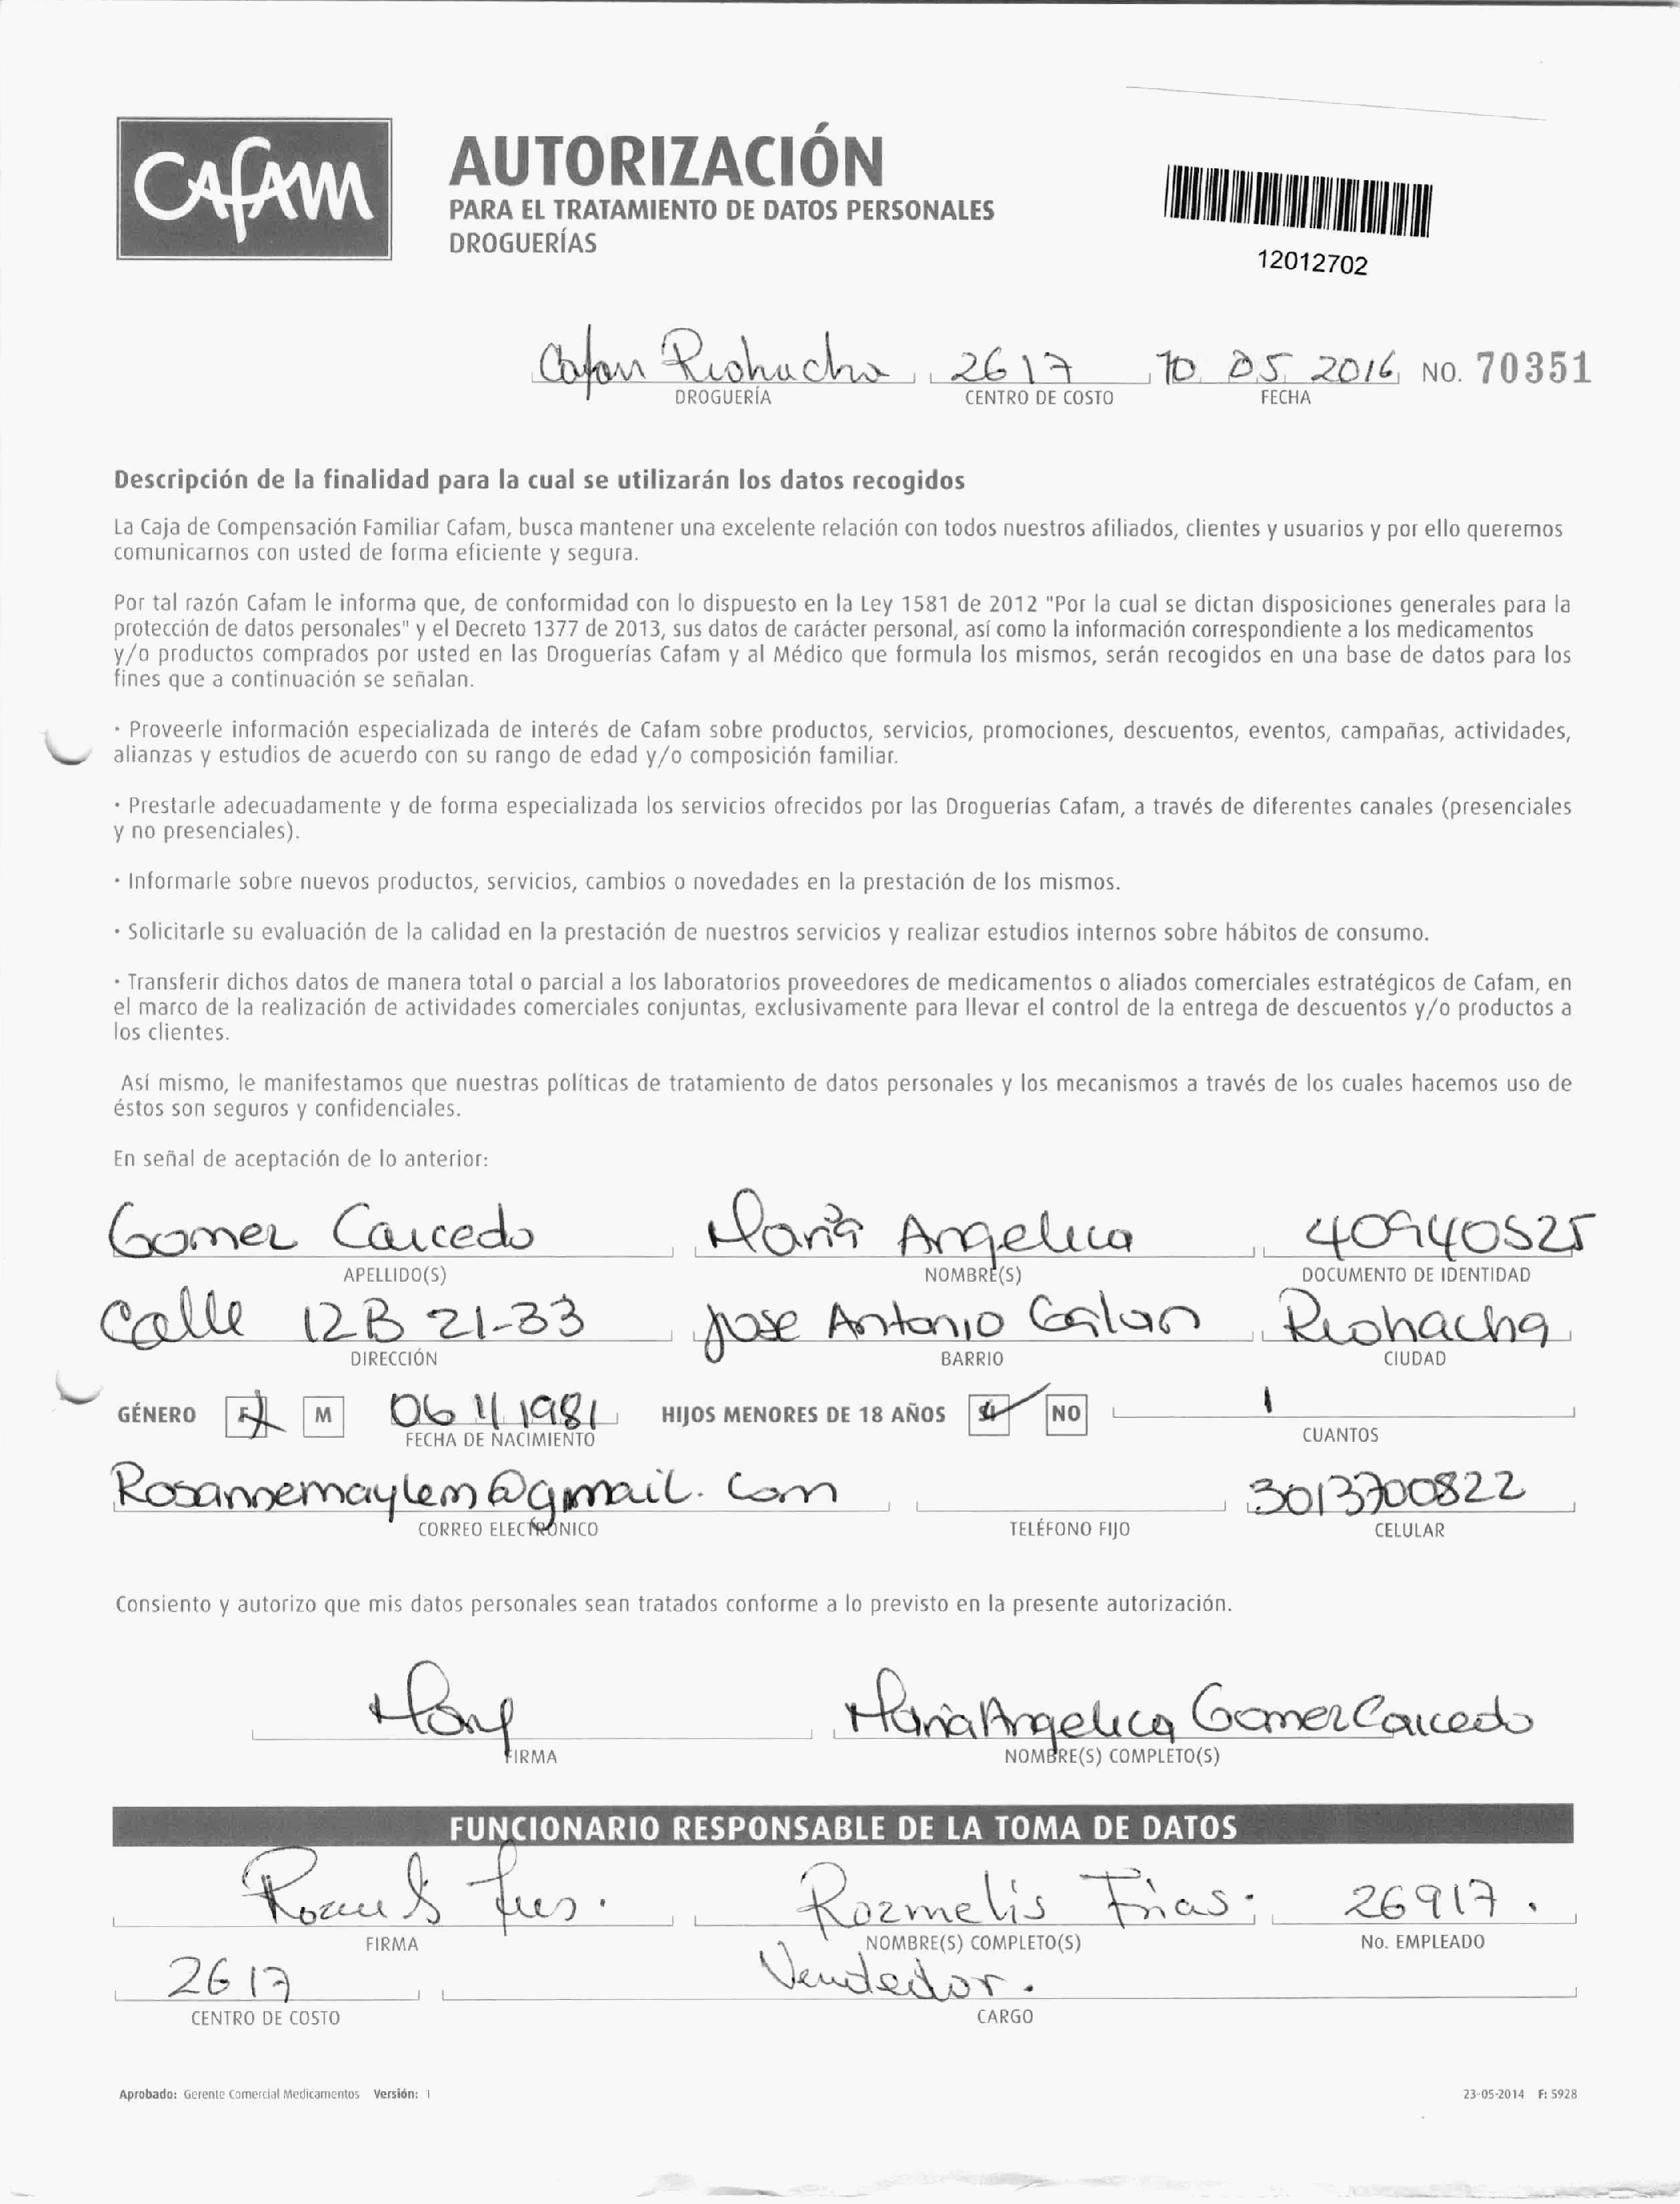 CAFAM
AUTORIZACIÓN
PARA EL TRATAMIENTO DE DATOS PERSONALES
DROGUERÍAS
12012702
Cafam Riohacha 2617 10 05 2016 NO. 70351
DROGUERÍA CENTRO DE COSTO FECHA
Descripción de la finalidad para la cual se utilizarán los datos recogidos
La Caja de Compensación Familiar Cafam, busca mantener una excelente relación con todos nuestros afiliados, clientes y usuarios y por ello queremos
comunicarnos con usted de forma eficiente y segura.
Por tal razón Cafam le informa que, de conformidad con lo dispuesto en la Ley 1581 de 2012 "Por la cual se dictan disposiciones generales para la
protección de datos personales" y el Decreto 1377 de 2013, sus datos de carácter personal, así como la información correspondiente a los medicamentos
y/o productos comprados por usted en las Droguerías Cafam y al Médico que formula los mismos, serán recogidos en una base de datos para los
fines que a continuación se señalan.
· Proveerle información especializada de interés de Cafam sobre productos, servicios, promociones, descuentos, eventos, campañas, actividades,
alianzas y estudios de acuerdo con su rango de edad y/o composición familiar.
· Prestarle adecuadamente y de forma especializada los servicios ofrecidos por las Droguerías Cafam, a través de diferentes canales (presenciales
y no presenciales).
· Informarle sobre nuevos productos, servicios, cambios o novedades en la prestación de los mismos.
· Solicitarle su evaluación de la calidad en la prestación de nuestros servicios y realizar estudios internos sobre hábitos de consumo.
· Transferir dichos datos de manera total o parcial a los laboratorios proveedores de medicamentos o aliados comerciales estratégicos de Cafam, en
el marco de la realización de actividades comerciales conjuntas, exclusivamente para llevar el control de la entrega de descuentos y/o productos a
los clientes.
Así mismo, le manifestamos que nuestras políticas de tratamiento de datos personales y los mecanismos a través de los cuales hacemos uso de
éstos son seguros y confidenciales.
En señal de aceptación de lo anterior:
Gomez Caicedo Maria Angelica 40940525
APELLIDO(S) NOMBRE(S) DOCUMENTO DE IDENTIDAD
Calle 12B 21-33 Jose Antonio Galan Riohacha
DIRECCIÓN BARRIO CIUDAD
GÉNERO F M 06 11 1981 HIJOS MENORES DE 18 AÑOS SI NO 1
FECHA DE NACIMIENTO CUANTOS
Rosannemaylem@gmail.com 3013700822
CORREO ELECTRÓNICO TELÉFONO FIJO CELULAR
Consiento y autorizo que mis datos personales sean tratados conforme a lo previsto en la presente autorización.
Maria Angelica Gomez Caicedo
FIRMA NOMBRE(S) COMPLETO(S)
FUNCIONARIO RESPONSABLE DE LA TOMA DE DATOS
Rozmelis Frias. 26917.
FIRMA NOMBRE(S) COMPLETO(S) No. EMPLEADO
2617 Vendedor.
CENTRO DE COSTO CARGO
Aprobado: Gerente Comercial Medicamentos Versión: 1 23-05-2014 F: 5928